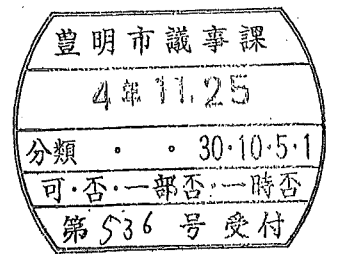 豊明市議事課
4年11.25
分類 ・ ・ 30・10・5・1
可・否・一部否・一時否
第536号受付